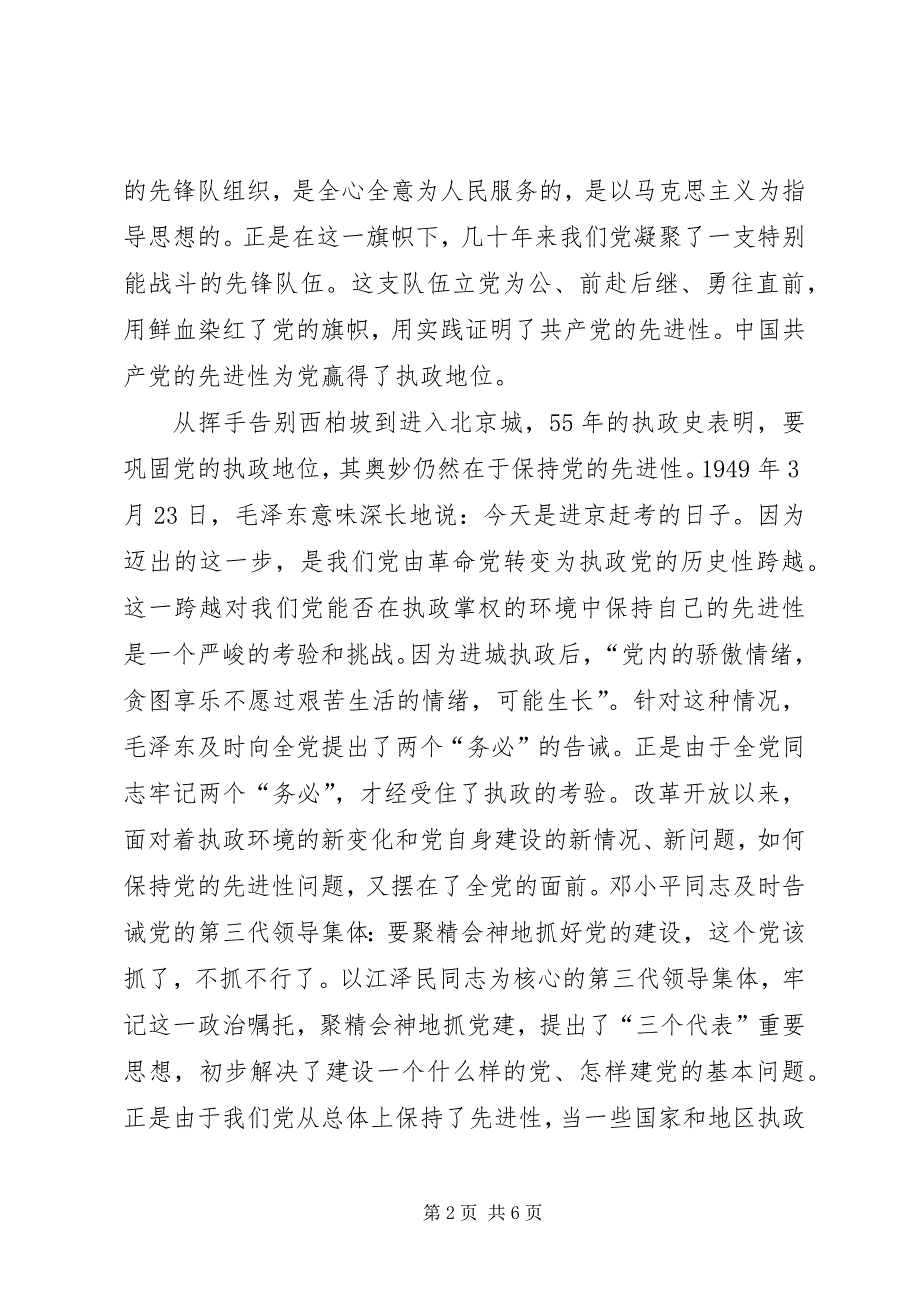 的先锋队组织，是全心全意为人民服务的，是以马克思主义为指
导思想的。正是在这一旗帜下，几十年来我们党凝聚了一支特别
能战斗的先锋队伍。这支队伍立党为公、前赴后继、勇往直前，
用鲜血染红了党的旗帜，用实践证明了共产党的先进性。中国共
产党的先进性为党赢得了执政地位。
从挥手告别西柏坡到进入北京城，55 年的执政史表明，要
巩固党的执政地位，其奥妙仍然在于保持党的先进性。1949 年 3
月 23 日，毛泽东意味深长地说：今天是进京赶考的日子。因为
迈出的这一步，是我们党由革命党转变为执政党的历史性跨越。
这一跨越对我们党能否在执政掌权的环境中保持自己的先进性
是一个严峻的考验和挑战。因为进城执政后，“党内的骄傲情绪，
贪图享乐不愿过艰苦生活的情绪，可能生长”。针对这种情况，
毛泽东及时向全党提出了两个“务必”的告诫。正是由于全党同
志牢记两个“务必”，才经受住了执政的考验。改革开放以来，
面对着执政环境的新变化和党自身建设的新情况、新问题，如何
保持党的先进性问题，又摆在了全党的面前。邓小平同志及时告
诫党的第三代领导集体：要聚精会神地抓好党的建设，这个党该
抓了，不抓不行了。以江泽民同志为核心的第三代领导集体，牢
记这一政治嘱托，聚精会神地抓党建，提出了“三个代表”重要
思想，初步解决了建设一个什么样的党、怎样建党的基本问题。
正是由于我们党从总体上保持了先进性，当一些国家和地区执政
第 2 页 共 6 页